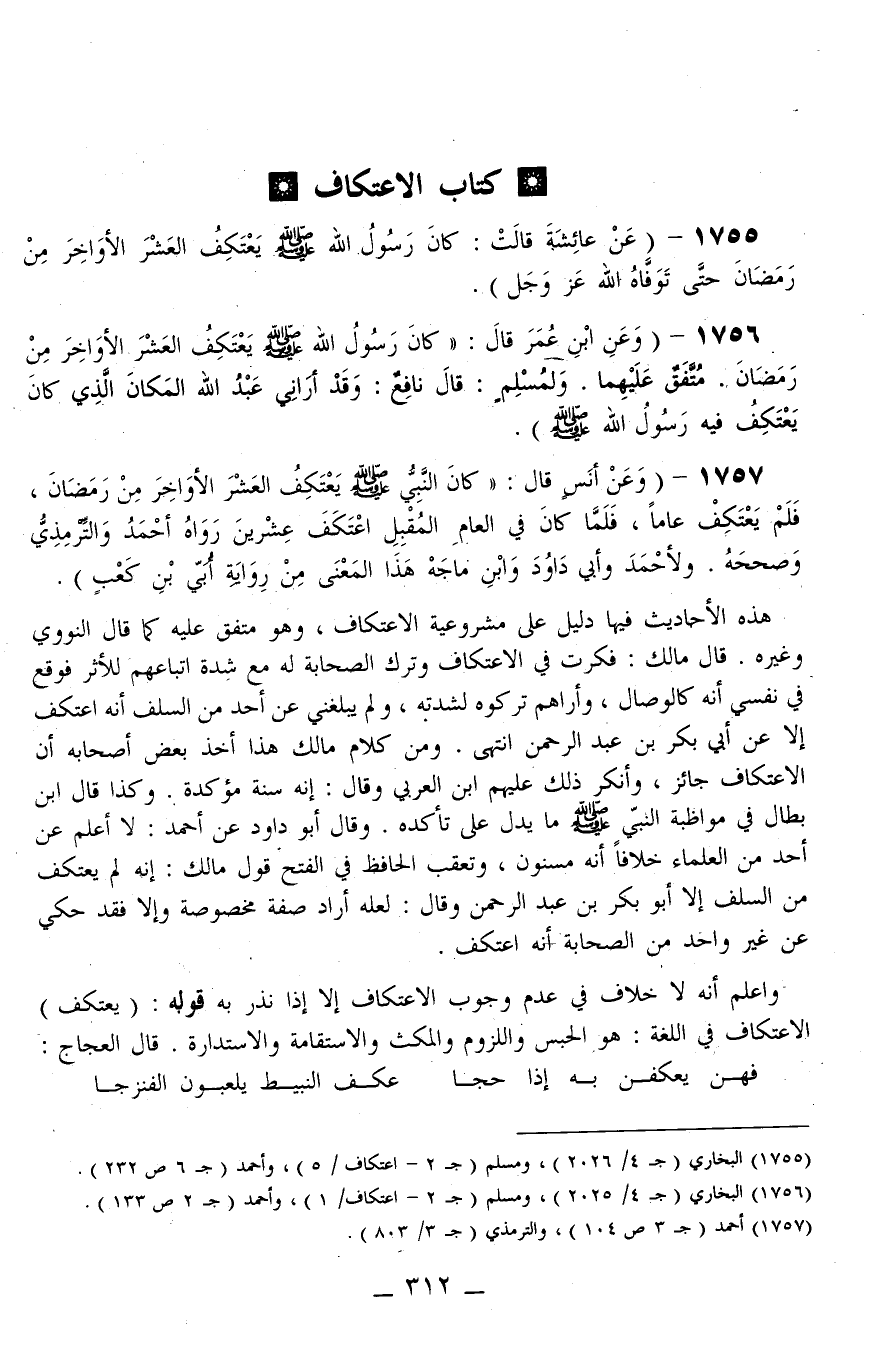 كتاب الاعتكاف
١٧٥٥ - ( عَنْ عائِشَةَ قالَتْ : كانَ رَسُولُ الله ﷺ يَعْتَكِفُ العَشْرَ الأوَاخِرَ مِنْ
رَمَضَانَ حتَّى تَوَفَّاهُ الله عَز وَجَل ) .
١٧٥٦ - ( وَعَنِ ابْنِ عُمَرَ قالَ : « كانَ رَسُولُ الله ﷺ يَعْتَكِفُ العَشْرَ الأوَاخِرَ مِنْ
رَمَضَانَ . مُتَّفَقٌ عَلَيْهِما . وَلمُسْلِمٍ : قالَ نافِعٌ : وَقَدْ أرَانِي عَبْدُ الله المَكانَ الَّذِي كانَ
يَعْتَكِفُ فيه رَسُولُ الله ﷺ ) .
١٧٥٧ - ( وَعَنْ أنَسٍ قال : « كانَ النَّبِيُّ ﷺ يَعْتَكِفُ العَشْرَ الأوَاخِرَ مِنْ رَمَضَانَ ،
فَلَمْ يَعْتَكِفْ عاماً ، فَلَمَّا كانَ في العامِ المُقْبِلِ اعْتَكَفَ عِشْرينَ رَوَاهُ أحْمَدُ وَالتِّرْمِذِيُّ
وَصححَهُ . ولأحْمَدَ وأبي دَاوُدَ وَابْنِ ماجَهْ هَذَا المَعْنَى مِنْ رِوَايَةِ أُبَيّ بْنِ كَعْبٍ ) .
هذه الأحاديث فيها دليل على مشروعية الاعتكاف ، وهو متفق عليه كما قال النووي
وغيره . قال مالك : فكرت في الاعتكاف وترك الصحابة له مع شدة اتباعهم للأثر فوقع
في نفسي أنه كالوصال ، وأراهم تركوه لشدته ، ولم يبلغني عن أحد من السلف أنه اعتكف
إلا عن أبي بكر بن عبد الرحمن انتهى . ومن كلام مالك هذا أخذ بعض أصحابه أن
الاعتكاف جائز ، وأنكر ذلك عليهم ابن العربي وقال : إنه سنة مؤكدة . وكذا قال ابن
بطال في مواظبة النبيّ ﷺ ما يدل على تأكده . وقال أبو داود عن أحمد : لا أعلم عن
أحد من العلماء خلافاً أنه مسنون ، وتعقب الحافظ في الفتح قول مالك : إنه لم يعتكف
من السلف إلا أبو بكر بن عبد الرحمن وقال : لعله أراد صفة مخصوصة وإلا فقد حكي
عن غير واحد من الصحابة أنه اعتكف .
واعلم أنه لا خلاف في عدم وجوب الاعتكاف إلا إذا نذر به قوله : ( يعتكف )
الاعتكاف في اللغة : هو الحبس واللزوم والمكث والاستقامة والاستدارة . قال العجاج :
فهن يعكفن به إذا حجا عكف النبيط يلعبون الفنزجا
(١٧٥٥) البخاري ( جـ ٤/ ٢٠٢٦ ) ، ومسلم ( جـ ٢ - اعتكاف / ٥ ) ، وأحمد ( جـ ٦ ص ٢٣٢ ) .
(١٧٥٦) البخاري ( جـ ٤/ ٢٠٢٥ ) ، ومسلم ( جـ ٢ - اعتكاف/ ١ ) ، وأحمد ( جـ ٢ ص ١٣٣ ) .
(١٧٥٧) أحمد ( جـ ٣ ص ١٠٤ ) ، والترمذي ( جـ ٣/ ٨٠٣ ) .
ـ ٣١٢ ـ